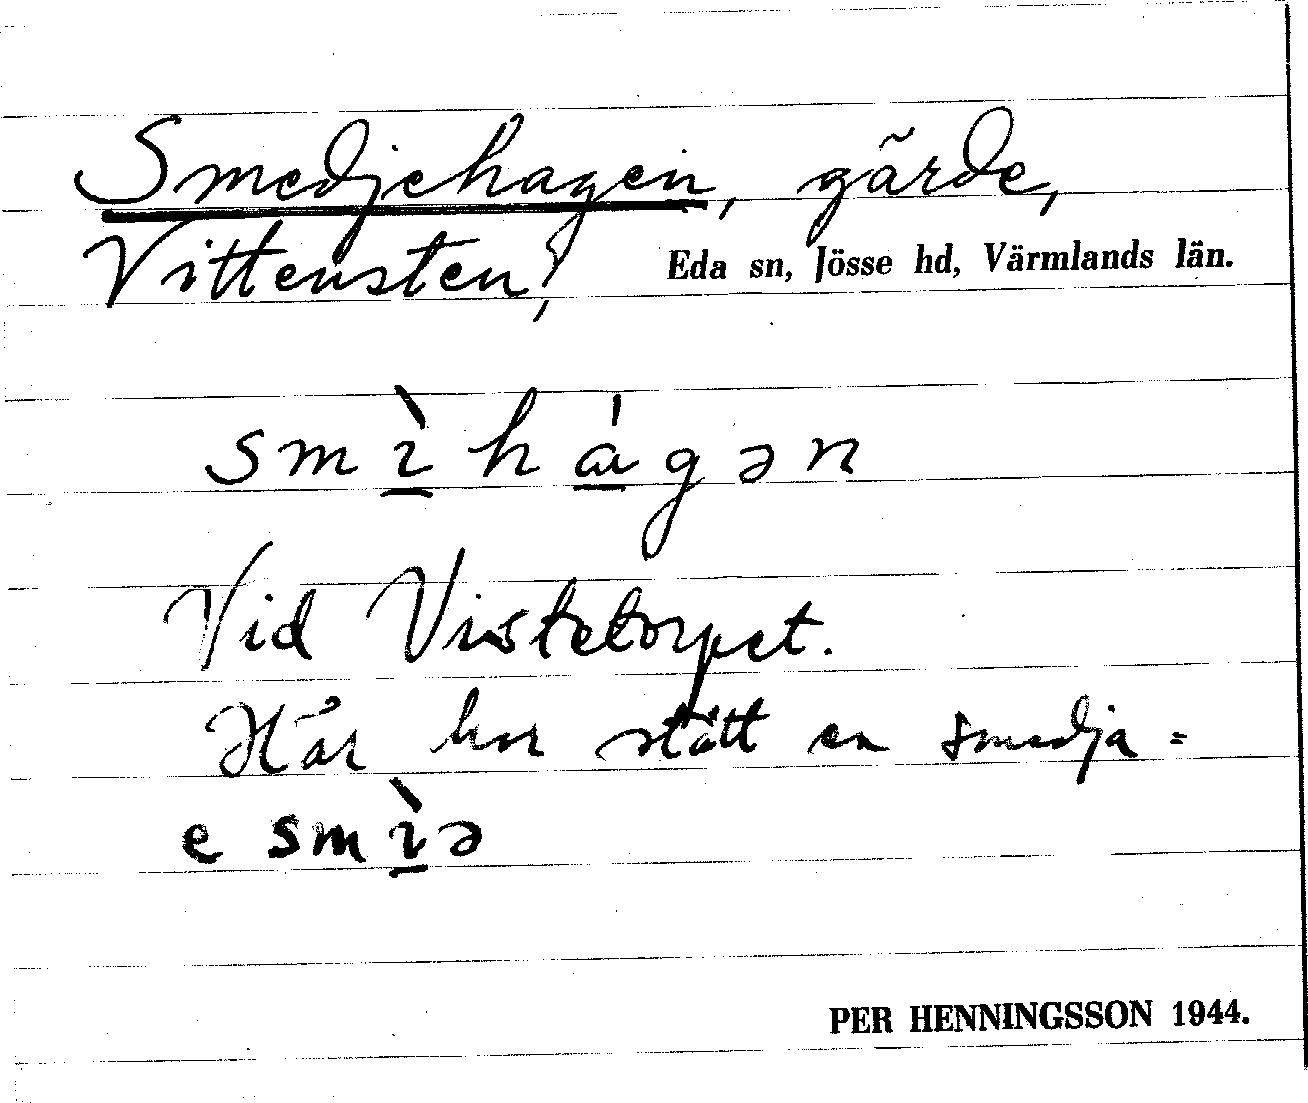 Smedjehagen, gärde,
Vittensten, Eda sn, Jösse hd, Värmlands län.
smı̱̀hά̱gən
Vid Vistetorpet.
Här har stått en smedja =
e smı̱̀ə
PER HENNINGSSON 1944.